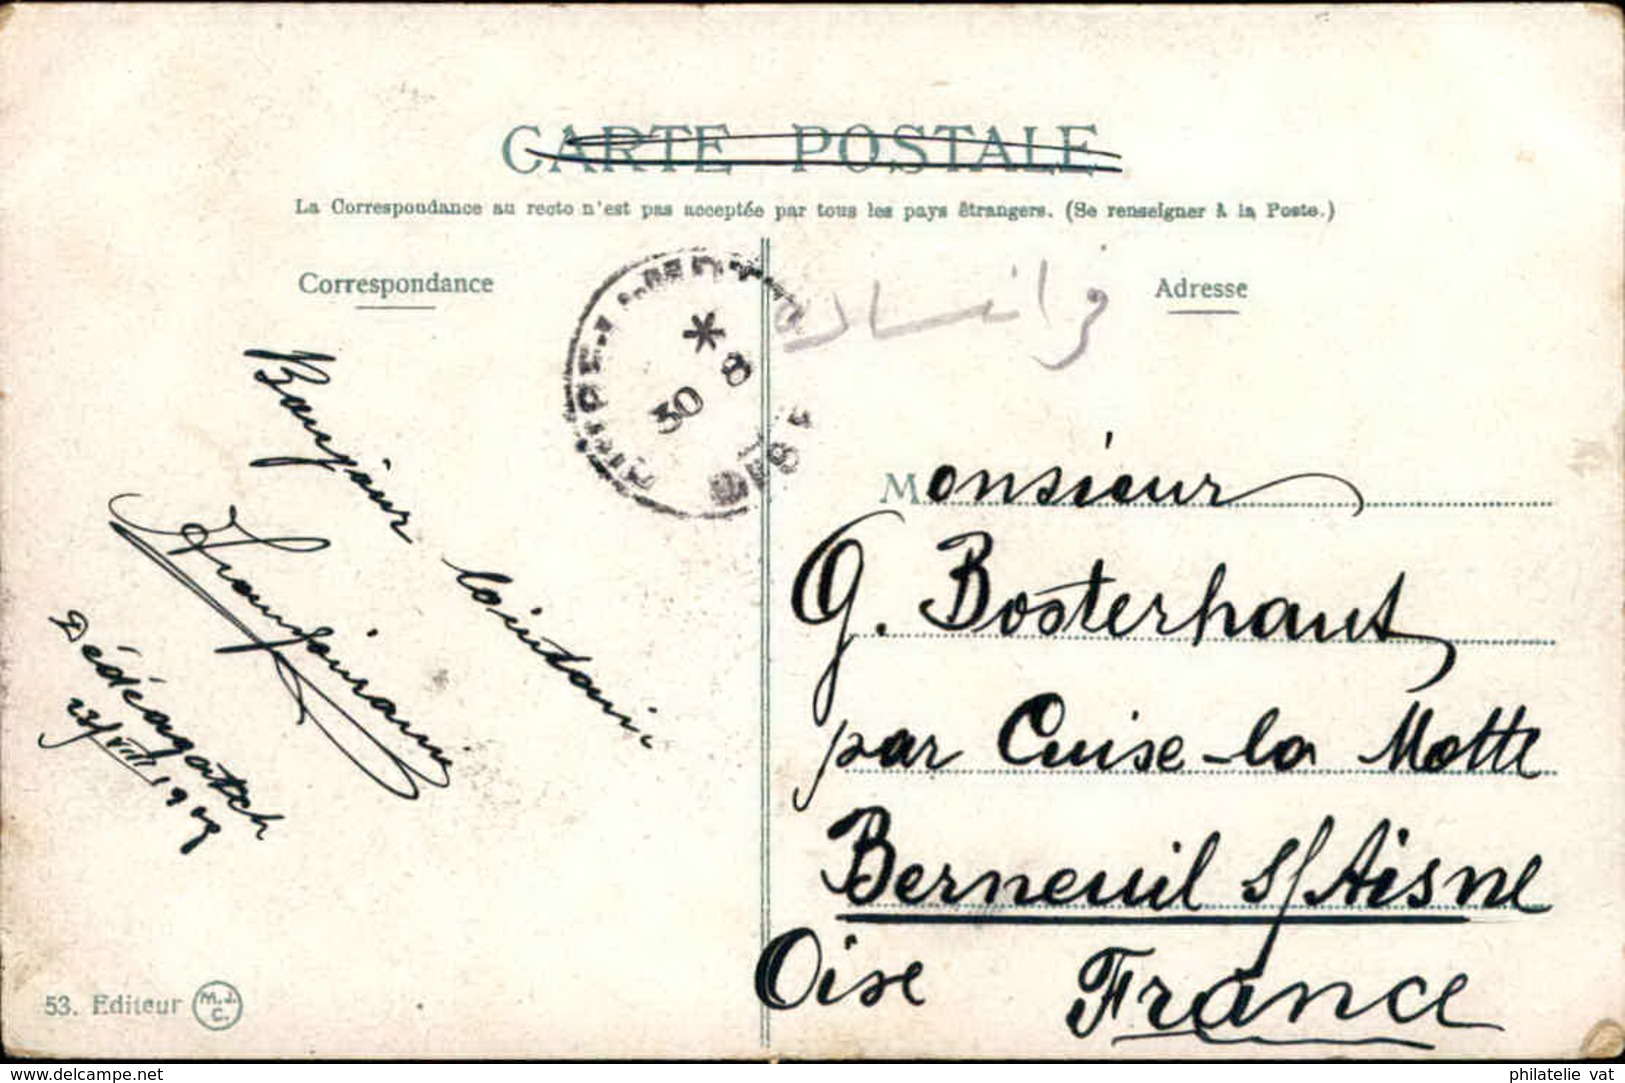 CARTE POSTALE
La Correspondance au recto n'est pas acceptée par tous les pays étrangers. (Se renseigner à la Poste.)
Correspondance
Adresse
فرانساده
* 8
30
Bonjour lointain
Dédéagatch
Monsieur
G. Bosterhaut
par Cuise-la Motte
Berneuil s/Aisne
Oise France
53. Editeur M.J.C.
www.delcampe.net
philatelie vat